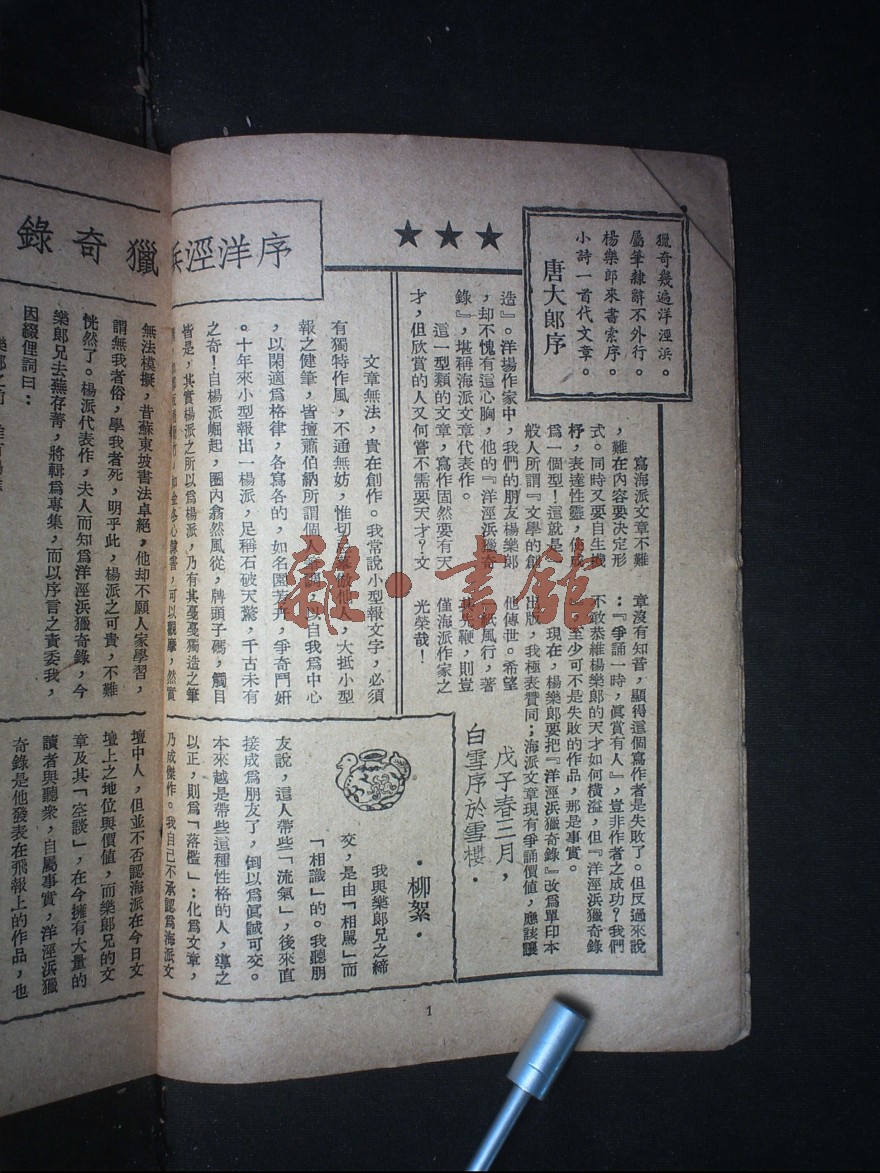 序洋涇浜獵奇錄
獵奇幾遍洋涇浜。
屬筆隸辭不外行。
楊樂郎來書索序。
小詩一首代文章。
唐大郎序
寫海派文章不難
，難在內容要決定形
式。同時又要自生機
杼，表達性靈，
爲一個型！這就是一
般人所謂『文學的創
造』。洋場作家中，我們的朋友楊樂郎
，却不愧有這心胸，他的『洋涇浜獵奇
錄』，堪稱海派文章代表作。
這一型類的文章，寫作固然要有天
才，但欣賞的人又何嘗不需要天才？文
章沒有知音，顯得這個寫作者是失敗了。但反過來說
：『爭誦一時，眞賞有人』，豈非作者之成功？我們
不敢恭維楊樂郎的天才如何橫溢，但『洋涇浜獵奇錄
』至少可不是失敗的作品，那是事實。
現在，楊樂郎要把『洋涇浜獵奇錄』改爲單印本
出版，我極表贊同；海派文章現有爭誦價値，應該讓
他傳世。希望
紙風行，著
其先鞭，則豈
僅海派作家之
光榮哉！
戊子春三月，
白雪序於雪樓．
文章無法，貴在創作。我常說小型報文字，必須
有獨特作風，不通無妨，惟切忌
他人，大抵小型
報之健筆，皆擅蕭伯納所謂個人
，以自我爲中心
，以閑適爲格律，各寫各的，如名園
，爭奇鬥妍
。十年來小型報出一楊派，足稱石破天驚，千古未有
之奇！自楊派崛起，圈內翕然風從，牌頭子碼，觸目
皆是，其實楊派之所以爲楊派，乃有其戛戛獨造之筆
，可以觀摩，然實
無法模擬，昔蘇東坡書法卓絕，他却不願人家學習，
謂無我者俗，學我者死，明乎此，楊派之可貴，不難
恍然了。楊派代表作，夫人而知爲洋涇浜獵奇錄，今
樂郎兄去蕪存菁，將輯爲專集，而以序言之責委我，
因綴俚詞曰：
．柳絮．
我與樂郎兄之締
交，是由「相罵」而
「相識」的。我聽朋
友說，這人帶些「流氣」，後來直
接成爲朋友了，倒以爲眞誠可交。
本來越是帶些這種性格的人，導之
以正，則爲「落檻」：化爲文章，
乃成傑作。我自己不承認爲海派文
壇中人，但並不否認海派在今日文
壇上之地位與價値，而樂郎兄的文
章及其「空談」，在今擁有大量的
讀者與聽衆，自屬事實，洋涇浜獵
奇錄是他發表在飛報上的作品，也
1
雜·書館